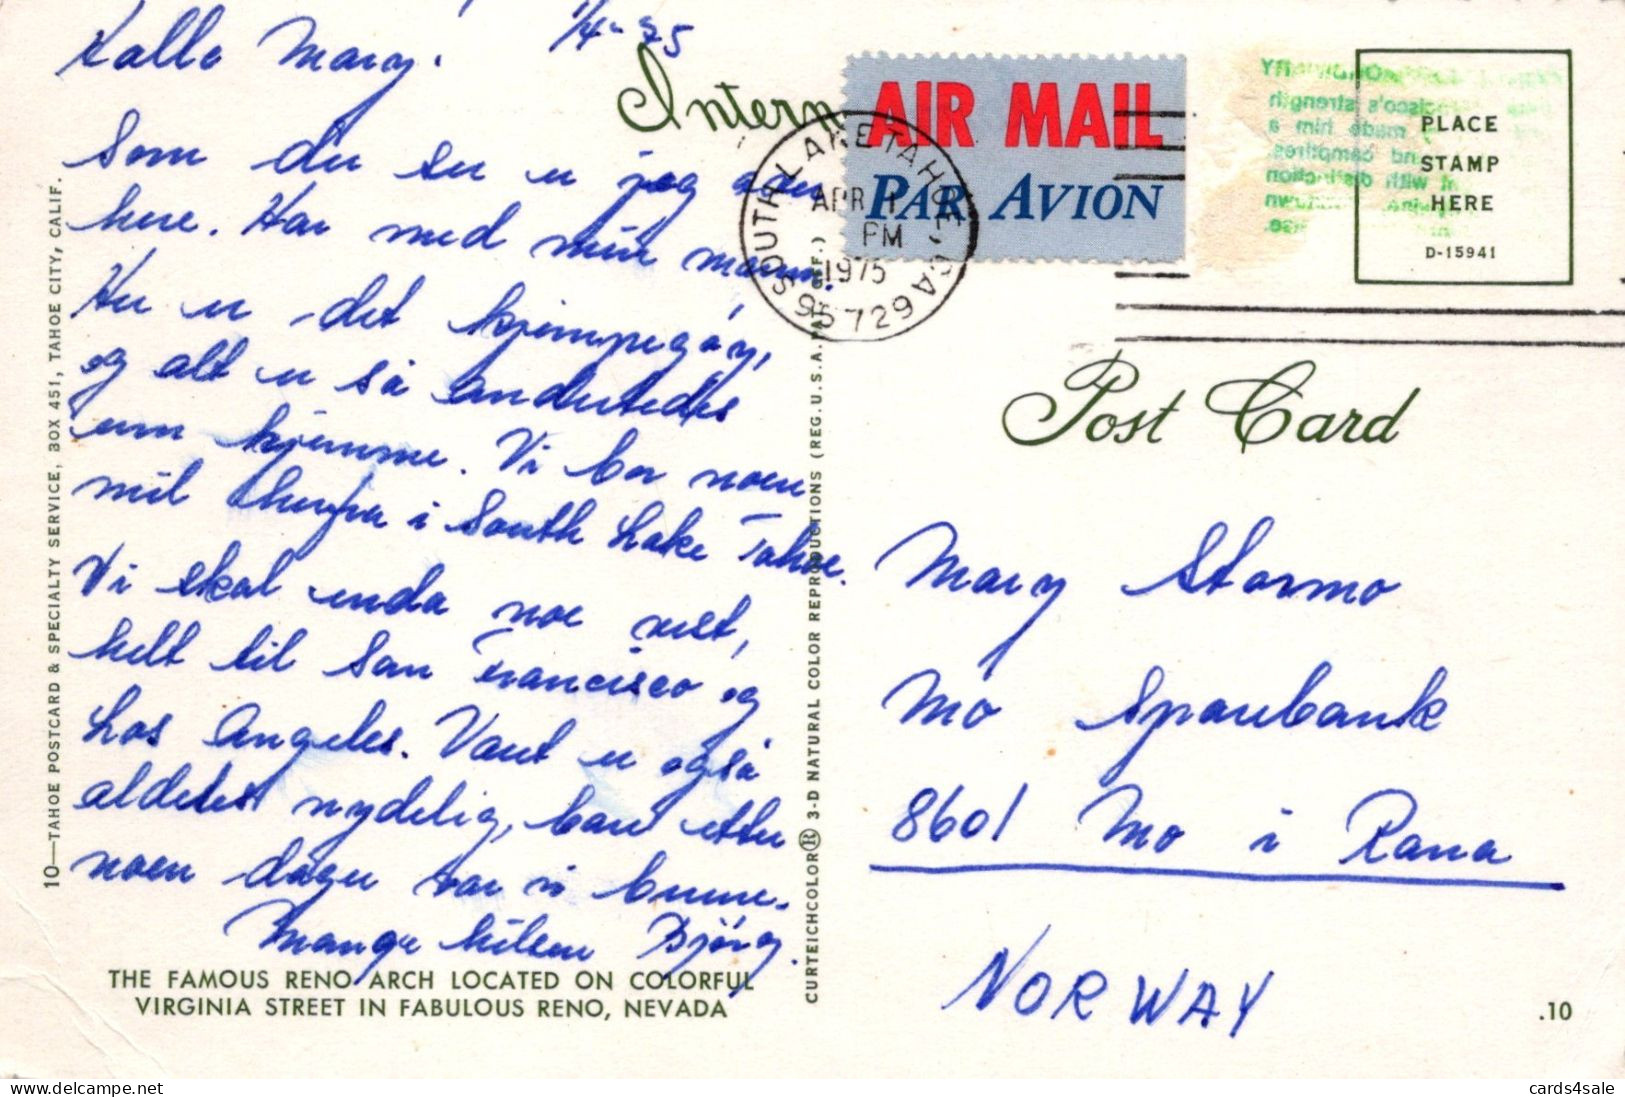 Hallo Mary! 1/4-75
Som du ser er jeg
here. Har med min mann.
Her er det kjempegøy,
og alt er så anderledes
enn hjemme. Vi bor noen
mil herfra i South Lake Tahoe.
Vi skal enda noe vest,
helt til San Francisco og
Los Angeles. Været er også
aldeles nydelig, bare etter
noen dager var vi brune.
Mange hilsen Bjørg.
THE FAMOUS RENO ARCH LOCATED ON COLORFUL
VIRGINIA STREET IN FABULOUS RENO, NEVADA
10—TAHOE POSTCARD & SPECIALTY SERVICE, BOX 451, TAHOE CITY, CALIF.
CURTEICHCOLOR® 3-D NATURAL COLOR REPRODUCTIONS (REG. U.S.A. PAT. OFF.)
Intern
AIR MAIL
PAR AVION
SOUTH LAKE TAHOE, CA
APR 1
PM
1975
95729
PLACE
STAMP
HERE
D-15941
Post Card
Mary Stormo
Mo Sparebank
8601 Mo i Rana
NORWAY
.10
cards4sale